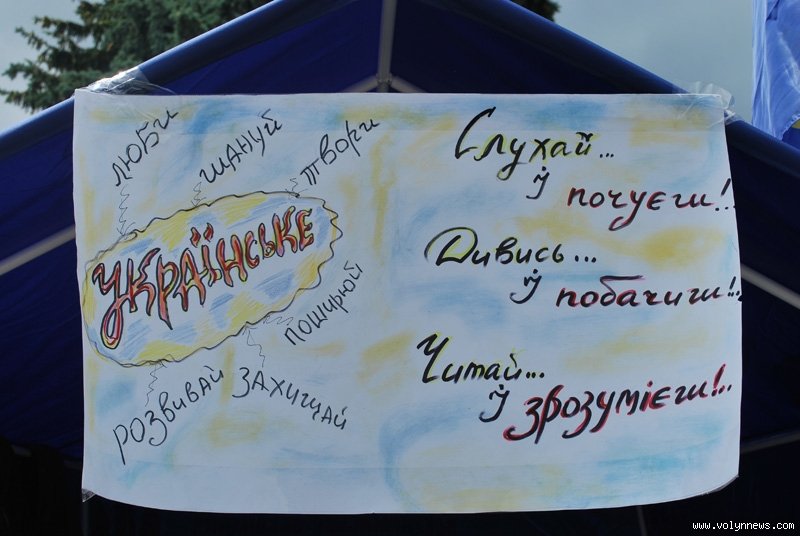 люби
шануй
твори
українське
поширюй
розвивай
захищай
Слухай...
й почуєш!..
Дивись...
й побачиш!..
Читай...
й зрозумієш!..
www.volynnews.com